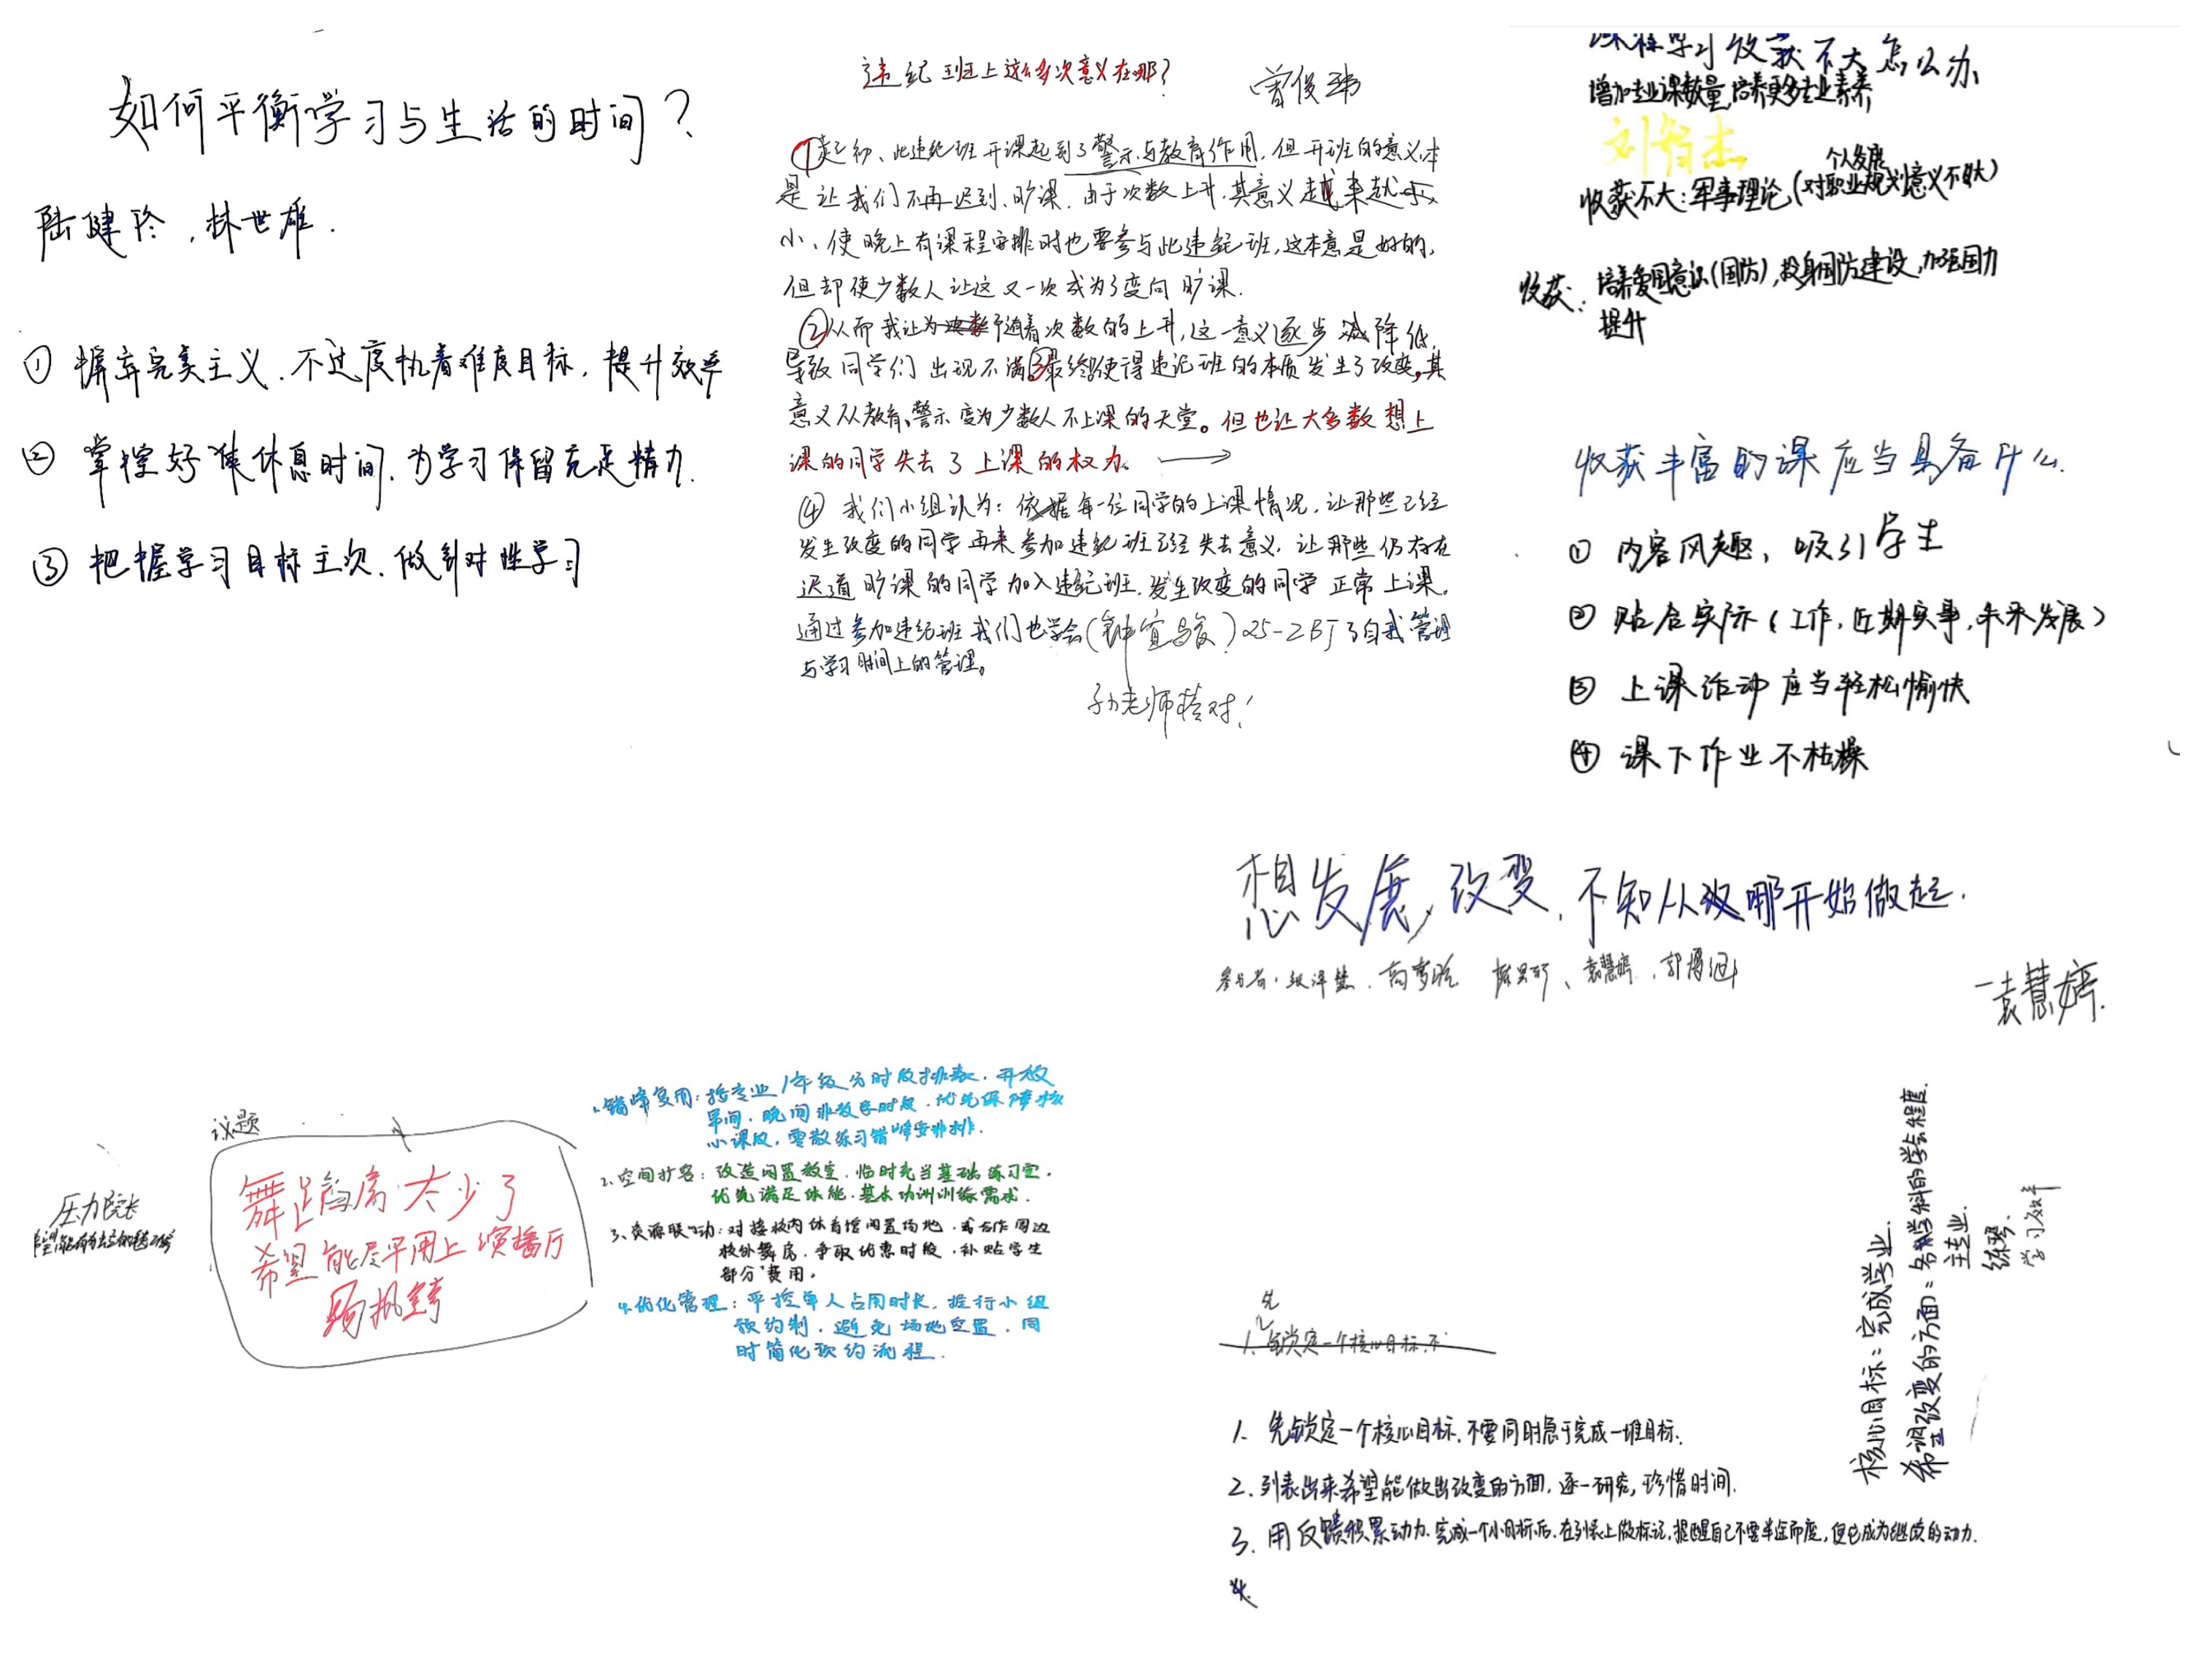 如何平衡学习与生活的时间？
陆健玲，林世雄.
① 摒弃完美主义.不过度执着难度目标，提升效率
② 掌控好休息时间.为学习保留充足精力.
③ 把握学习目标主次.做针对性学习
违纪班上这么多次意义在哪？
曾俊玮
①起初、此违纪班开课起到了警示与教育作用.但开班的意义本
是让我们不再迟到、旷课.由于次数上升.其意义越来越
小、使晚上有课程安排时也要参与此违纪班,这本意是好的,
但却使少数人让这又一次成为了变向旷课.
②从而我认为随着次数的上升,这一意义逐步降低.
导致同学们出现不满③最终使得违纪班的本质发生了改变,其
意义从教育、警示变为少数人不上课的天堂。但也让大多数想上
课的同学失去了上课的权力。
④ 我们小组认为：依据每一位同学的上课情况.让那些已经
发生改变的同学再来参加违纪班已经失去意义.让那些仍存在
迟道旷课的同学加入违纪班.发生改变的同学正常上课.
通过参加违纪班我们也学会(钟宜) 25-2BJ了自我管理
与学习时间上的管理。
孙老师 对！
课程学习收获不大怎么办
增加专业课数量,培养更多专业素养
刘智杰
个人发展
收获不大：军事理论(对职业规划意义不大)
收获：培养爱国意识(国防),投身国防建设,加强国力
提升
收获丰富的课应当具备什么.
① 内容风趣，吸引学生
② 贴合实际(工作,近期实事,未来发展)
③ 上课活动应当轻松愉快
④ 课下作业不枯燥
想发展,改变.不知从哪开始做起.
参与者：袁慧婷
袁慧婷.
议题
舞蹈房太少了
希望能尽早用上演播厅
压力院长
1.错峰复用：按专业/年级分时段排表.开放
早间.晚间非教学时段.优先保障核
小课段，零散练习错峰安排.
2.空间扩容：改造闲置教室.临时充当基础练习室.
优先满足体能.基本功训练需求.
3、资源联动：对接校内体育馆闲置场地.或合作周边
校外舞房.争取优惠时段.补贴学生
部分费用.
4.优化管理：严控单人占用时长.推行小组
预约制.避免场地空置.同
时简化预约流程.
先
1.锁定一个核心目标.不
1. 先锁定一个核心目标.不要同时急于完成一堆目标.
2.列表出来希望能做出改变的方面.逐一研究,珍惜时间.
3. 用反馈积累动力.完成一个小目标后.在列表上做标记.提醒自己不要半途而废,使它成为继续的动力.
核心目标：完成学业.
希望改变的方面：各学科的学会程度.
主专业.
练琴.
学习效率